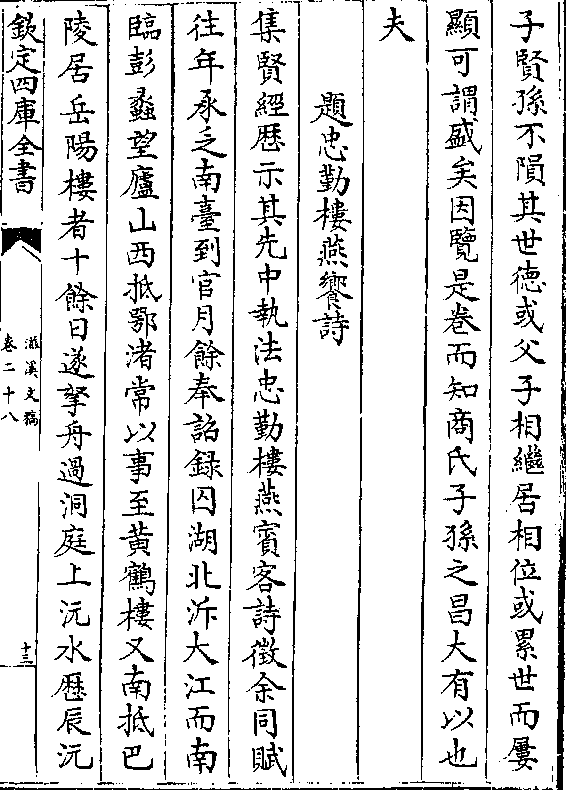 子賢孫不隕其世德或父子相繼居相位或累世而屢
顯可謂盛矣因覽是卷而知商氏子孫之昌大有以也
夫
題忠勤樓燕饗詩
集賢經歴示其先中執法忠勤樓燕賓客詩徵余同賦
往年承乏南臺到官月餘奉詔録囚湖北泝大江而南
臨彭蠡望廬山西抵鄂渚常以事至黄鶴樓又南抵巴
陵居岳陽樓者十餘日遂拏舟過洞庭上沅水歴辰沅
欽定四庫全書
滋溪文稿
卷二十八
十三